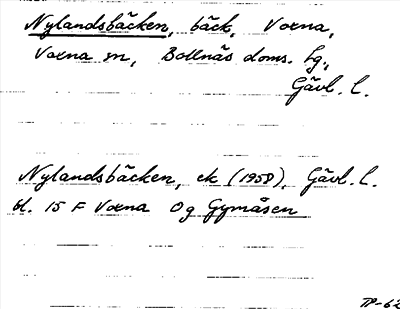 Nylandsbäcken, bäck, Voxna,
Voxna sn, Bollnäs doms. hg,
Gävl. l.
Nylandsbäcken, ek (1958), Gävl. l.
bl. 15 F Voxna Og Gymåsen
TP-62